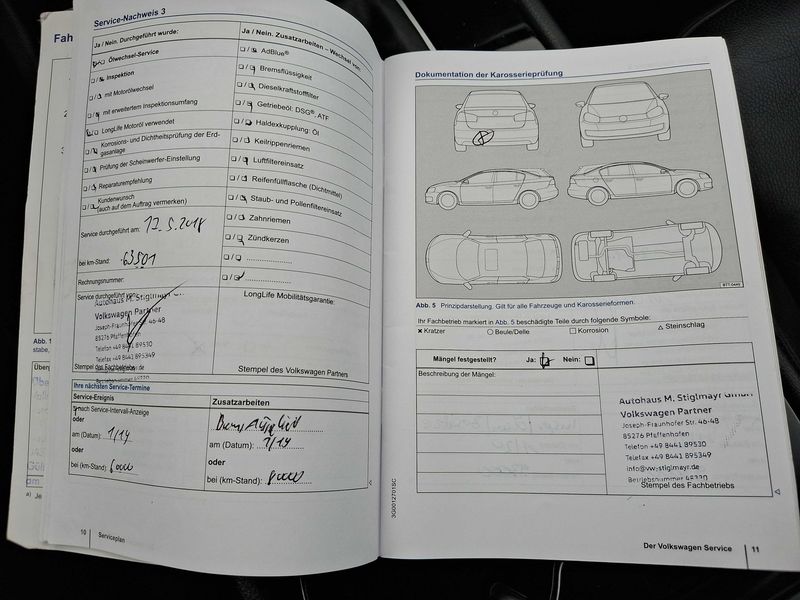 Fah
Service-Nachweis 3
Ja / Nein. Durchgeführt wurde:
Ölwechsel-Service
Inspektion
mit Motorölwechsel
mit erweitertem Inspektionsumfang
LongLife Motoröl verwendet
Korrosions- und Dichtheitsprüfung der Erd-
gasanlage
Prüfung der Scheinwerfer-Einstellung
Reparaturempfehlung
Kundenwunsch
(auch auf dem Auftrag vermerken)
Service durchgeführt am:
bei km-Stand: 63501
Rechnungsnummer:
Service durchgeführt von:
Autohaus M. Stiglmayr
Volkswagen Partner
85276 Pfaffenhofen
Telefon +49 8441 89530
Telefax +49 8441 895349
Stempel des Fachbetriebs
Ja / Nein. Zusatzarbeiten – Wechsel von:
AdBlue®
Bremsflüssigkeit
Dieselkraftstofffilter
Getriebeöl: DSG®, ATF
Haldexkupplung: Öl
Keilrippenriemen
Luftfiltereinsatz
Reifenfüllflasche (Dichtmittel)
Staub- und Pollenfiltereinsatz
Zahnriemen
Zündkerzen
LongLife Mobilitätsgarantie:
Stempel des Volkswagen Partners
Ihre nächsten Service-Termine
Service-Ereignis
nach Service-Intervall-Anzeige
oder
am (Datum): 1/19
oder
bei (km-Stand):
Zusatzarbeiten
am (Datum): 1/19
oder
bei (km-Stand):
10
Serviceplan
Abb. 1
Dokumentation der Karosserieprüfung
Abb. 5 Prinzipdarstellung. Gilt für alle Fahrzeuge und Karosserieformen.
Ihr Fachbetrieb markiert in Abb. 5 beschädigte Teile durch folgende Symbole:
× Kratzer ○ Beule/Delle □ Korrosion △ Steinschlag
Mängel festgestellt? Ja: Nein:
Beschreibung der Mängel:
Autohaus M. Stiglmayr GmbH
Volkswagen Partner
Joseph-Fraunhofer Str. 46-48
85276 Pfaffenhofen
Telefon +49 8441 89530
Telefax +49 8441 895349
info@vw-stiglmayr.de
Stempel des Fachbetriebs
3G0012701SC
Der Volkswagen Service
11